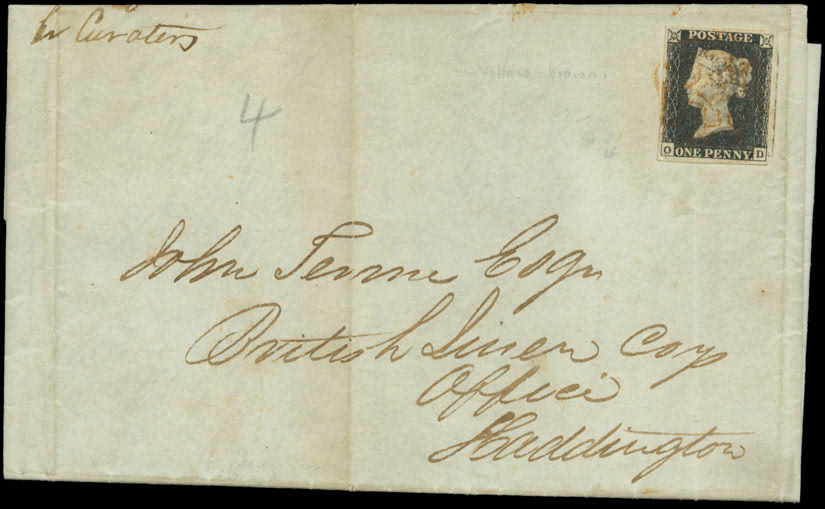 Curators
POSTAGE
Yellow-brown
4
O ONE PENNY D
John
Esqr
British Linen Coys
Office
Haddington